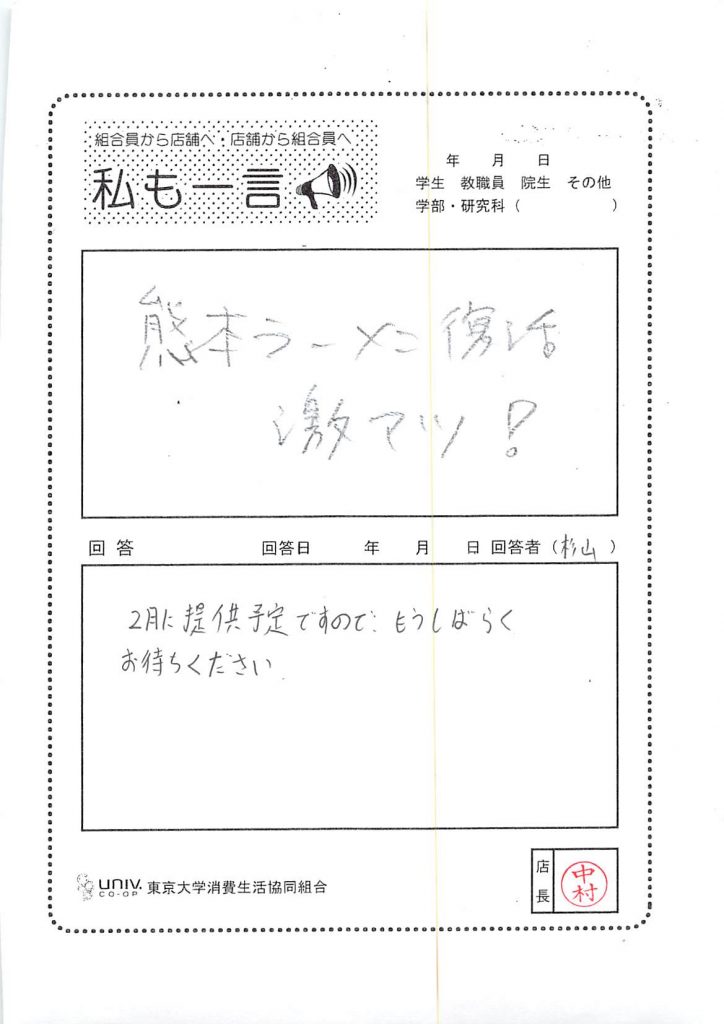 組合員から店舗へ・店舗から組合員へ
私も一言
年 月 日
学生 教職員 院生 その他
学部・研究科（ ）
熊本ラーメン復活
激アツ！
回答 回答日 年 月 日 回答者（杉山）
2月に提供予定ですので、もうしばらく
お待ちください
UNIV. CO-OP 東京大学消費生活協同組合
店長 中村